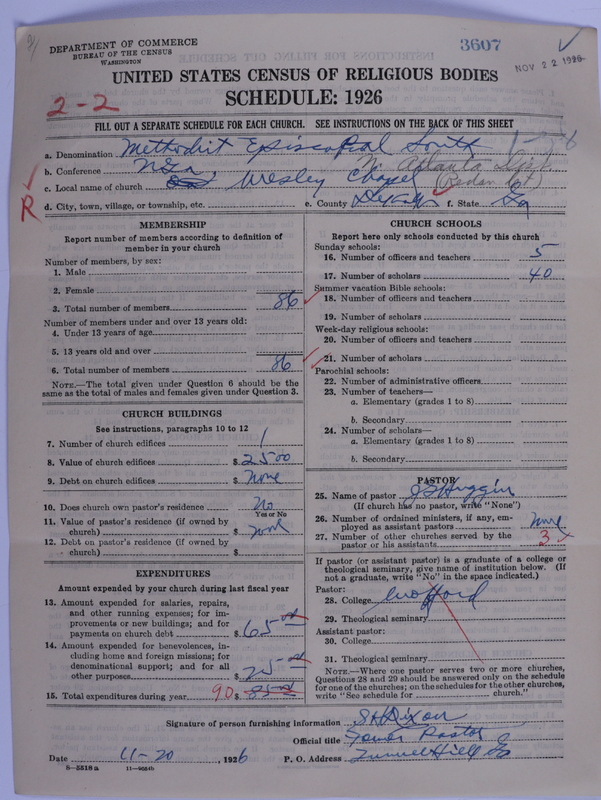 DEPARTMENT OF COMMERCE
BUREAU OF THE CENSUS
WASHINGTON
3607
NOV 22 1926
UNITED STATES CENSUS OF RELIGIOUS BODIES
SCHEDULE: 1926
2-2
FILL OUT A SEPARATE SCHEDULE FOR EACH CHURCH. SEE INSTRUCTIONS ON THE BACK OF THIS SHEET
a. Denomination Methodist Episcopal South
b. Conference N Ga N. Atlanta Dist.
c. Local name of church Wesley Chapel
R
d. City, town, village, or township, etc. e. County DeKalb f. State Ga
MEMBERSHIP
Report number of members according to definition of member in your church
Number of members, by sex:
1. Male
2. Female
3. Total number of members 86
Number of members under and over 13 years old:
4. Under 13 years of age
5. 13 years old and over
6. Total number of members 86
NOTE.—The total given under Question 6 should be the same as the total of males and females given under Question 3.
CHURCH BUILDINGS
See instructions, paragraphs 10 to 12
7. Number of church edifices 1
8. Value of church edifices $ 2500
9. Debt on church edifices $ None
10. Does church own pastor's residence No
Yes or No
11. Value of pastor's residence (if owned by church) $
12. Debt on pastor's residence (if owned by church) $
EXPENDITURES
Amount expended by your church during last fiscal year
13. Amount expended for salaries, repairs, and other running expenses; for improvements or new buildings; and for payments on church debt $ 65.00
14. Amount expended for benevolences, including home and foreign missions; for denominational support; and for all other purposes $ 25.00
15. Total expenditures during year 90 $ 85.00
CHURCH SCHOOLS
Report here only schools conducted by this church
Sunday schools:
16. Number of officers and teachers 5
17. Number of scholars 40
Summer vacation Bible schools:
18. Number of officers and teachers
19. Number of scholars
Week-day religious schools:
20. Number of officers and teachers
21. Number of scholars
Parochial schools:
22. Number of administrative officers
23. Number of teachers—
a. Elementary (grades 1 to 8)
b. Secondary
24. Number of scholars—
a. Elementary (grades 1 to 8)
b. Secondary
PASTOR
25. Name of pastor
(If church has no pastor, write "None")
26. Number of ordained ministers, if any, employed as assistant pastors None
27. Number of other churches served by the pastor or his assistants 3
If pastor (or assistant pastor) is a graduate of a college or theological seminary, give name of institution below. (If not a graduate, write "No" in the space indicated.)
Pastor:
28. College Wofford
29. Theological seminary
Assistant pastor:
30. College
31. Theological seminary
NOTE.—Where one pastor serves two or more churches, Questions 28 and 29 should be answered only on the schedule for one of the churches; on the schedules for the other churches, write "See schedule for church."
Signature of person furnishing information S H Dixon
Official title Former Pastor
Date 11-20, 1926 P. O. Address Tunnel Hill Ga
8-5518 a